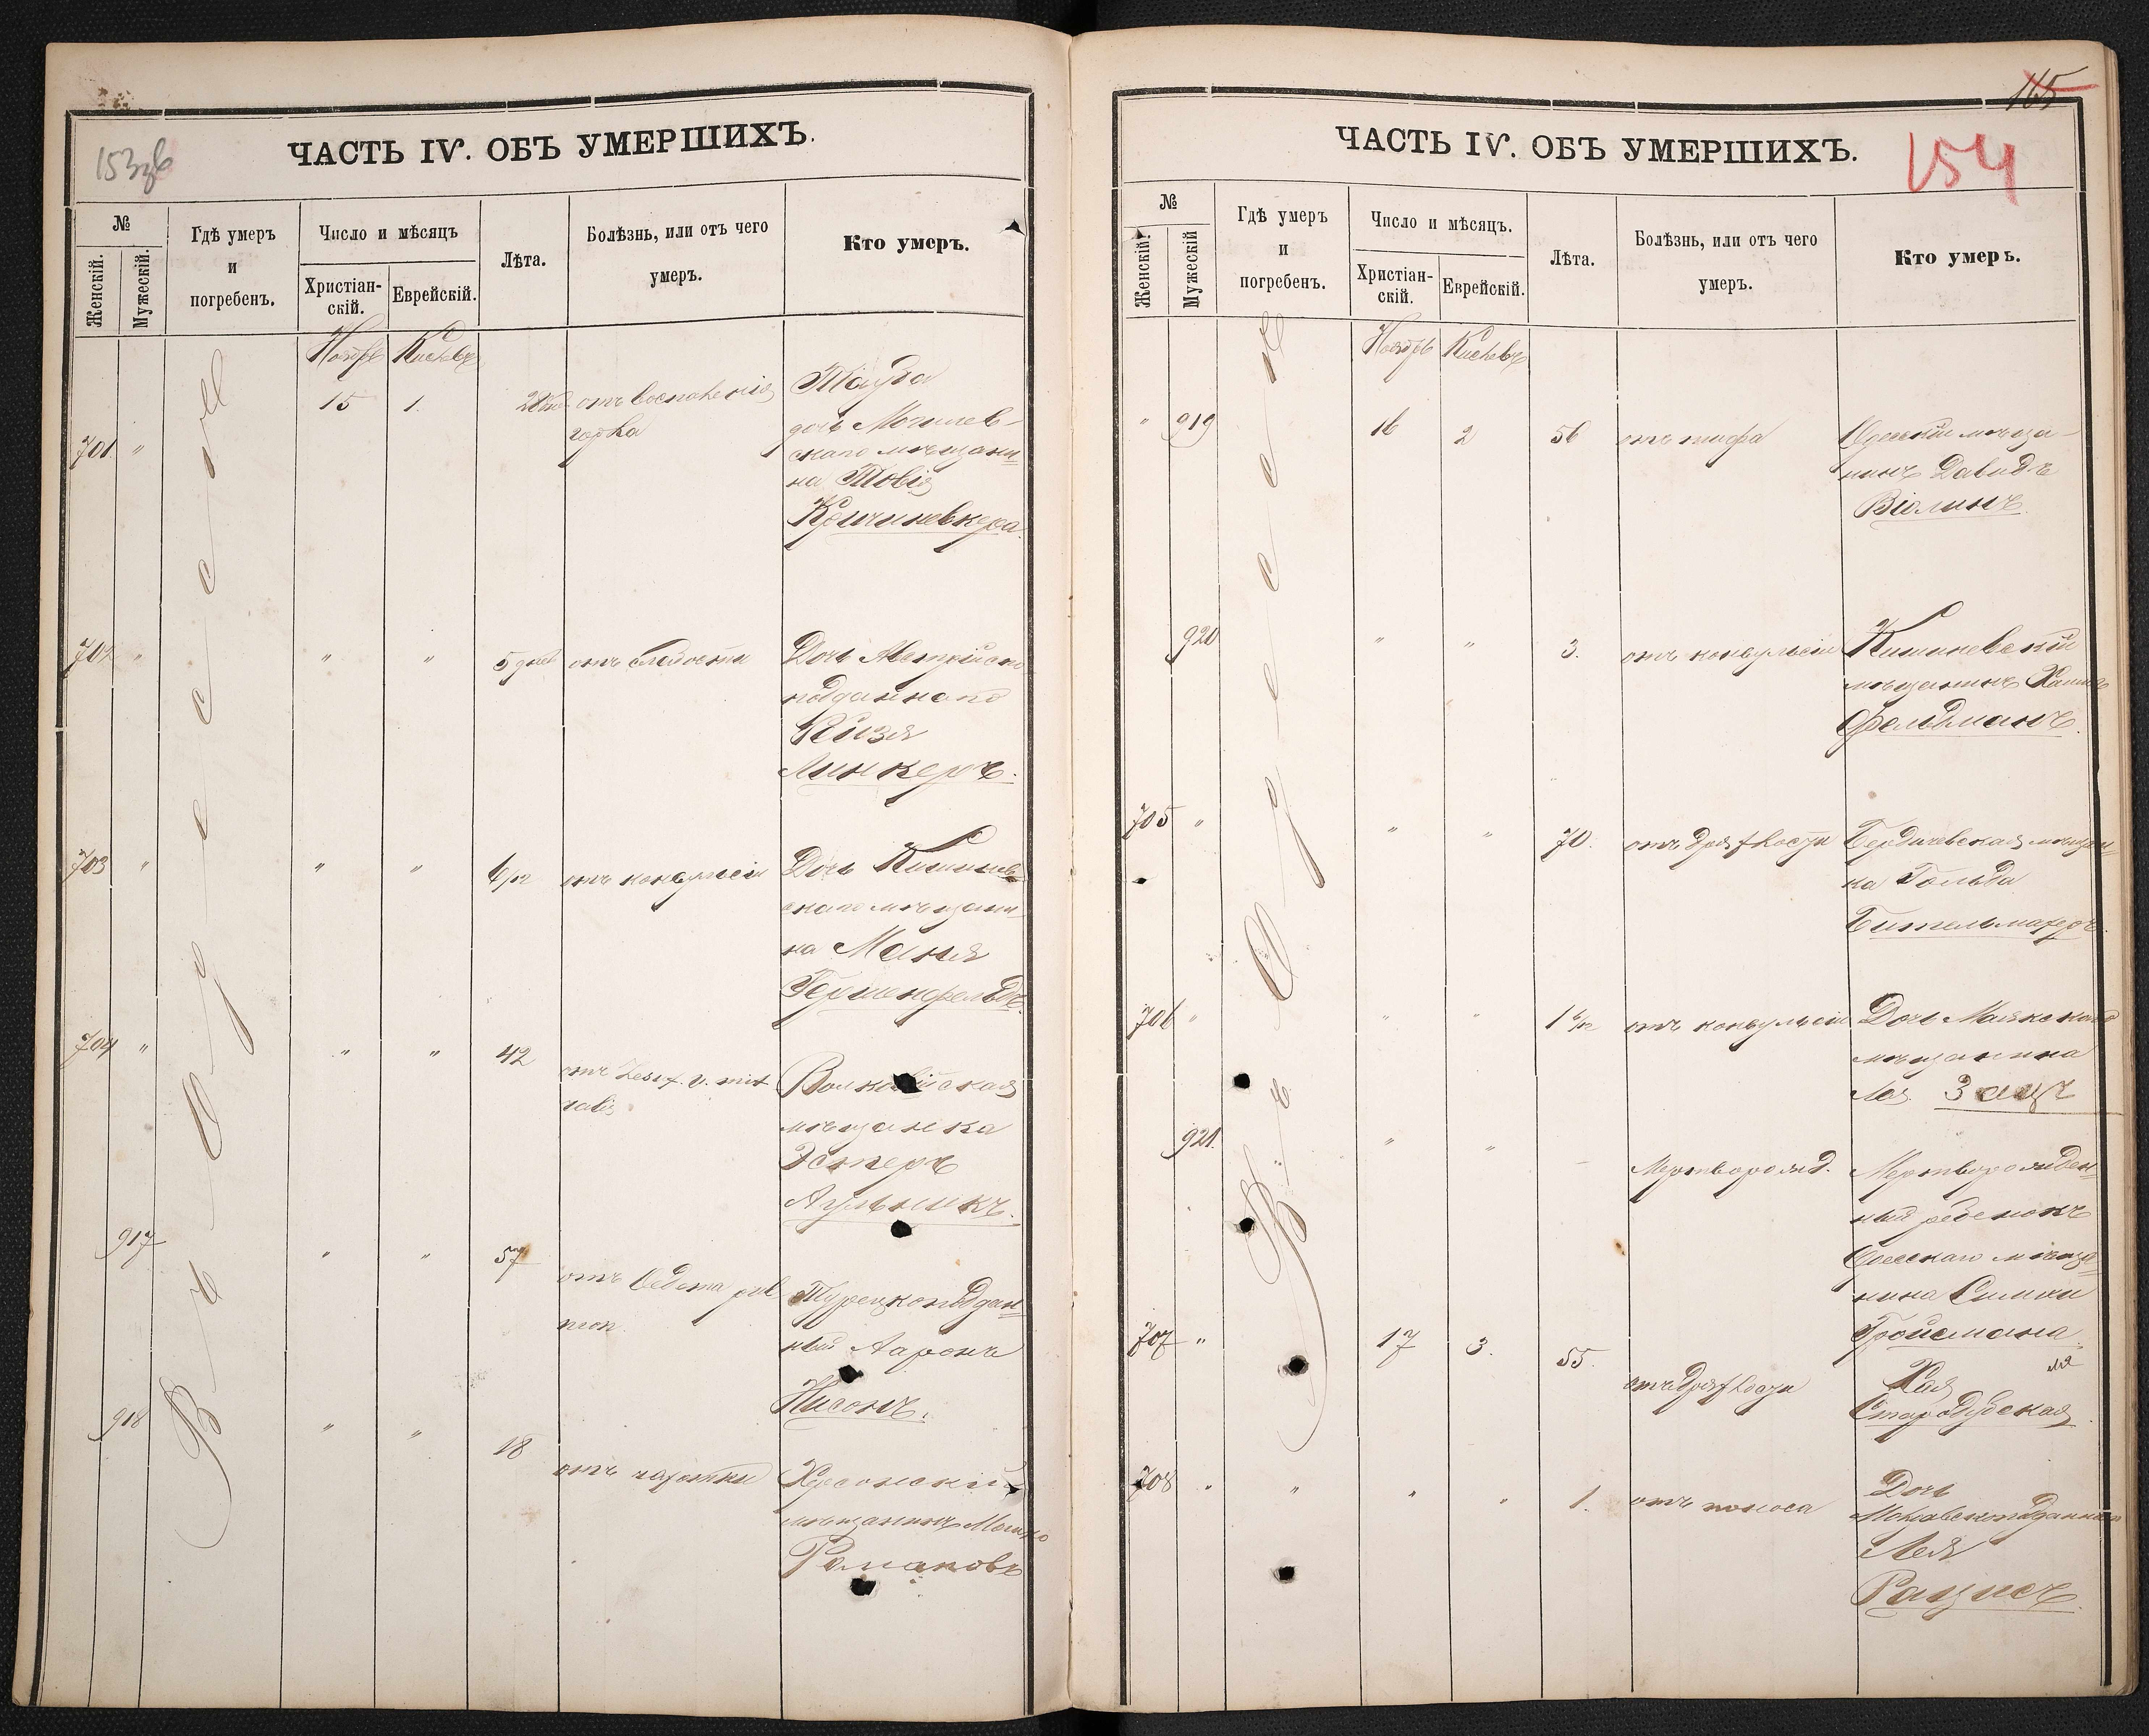 153зб
ЧАСТЬ IV. ОБЪ УМЕРШИХЪ.
№
Женскій.
Мужескій.
Гдѣ умеръ
и
погребенъ.
Число и мѣсяцъ
Христіан-
скій.
Еврейскій.
Лѣта.
Болѣзнь, или отъ чего
умеръ.
Кто умеръ.
Въ Одессѣ
Ноябрь Кислевъ
701 " 15 1. отъ воспаленія
горла
Тауба
дочь Могилев-
скаго мѣщани-
на Товія
Кришиневкера
702 " " " 5 дней отъ слабости
Дочь Австрійско
подданнаго
Рейзя
Линкеръ.
703 " " " 6/12 отъ конвульсіи
Дочь Кишинев
скаго мѣщани-
на Маня
Гершенфельдъ.
704 " " " 42 отъ
Волковійская
мѣщанка
Эстеръ
Агульникъ.
917 " " 57 отъ Oedema pul
mon
Турецкоподдан-
ный Ааронъ
Нисонъ.
918 " " 18 отъ чахотки
Херсонскій
мѣщанинъ Мошко
Романовъ
165
154
ЧАСТЬ IV. ОБЪ УМЕРШИХЪ.
№
Женскій.
Мужескій
Гдѣ умеръ
и
погребенъ.
Число и мѣсяцъ.
Христіан-
скій.
Еврейскій.
Лѣта.
Болѣзнь, или отъ чего
умеръ.
Кто умеръ.
Въ Одессѣ
Ноябрь Кислевъ
" 919 16 2 56 отъ тифа
Одесскій мѣща-
нинъ Давидъ
Віолинъ
920 " " 3. отъ конвульсіи
Кишиневскій
мѣщанинъ Хаимъ
Фельдманъ.
705 " " " 70. отъ дряхлости
Бердичевская мѣщан-
ка Гольда
Бительмахеръ
706 " " " 1 6/12 отъ конвульсіи
Дочь Маякскаго
мѣщанина
Лея Заяцъ
921. " " – Мертворожд.
Мертворожден-
ный ребенокъ
Одесскаго мѣща-
нина Симхи
Гройсмана.
707 " 17 3. 55. отъ дряхлости
Хая
Стародубская
708 " " " " 1. отъ поноса
Дочь
Лея
Рацисъ.